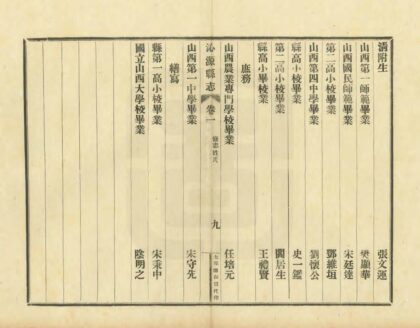 清附生 張文運
山西第一師範畢業 樊顯華
山西國民師範畢業 宋廷達
第二高小校畢業 鄧維垣
山西第四中學畢業 劉懷公
縣高小校畢業 史一鑑
第二高小校畢業 閻居生
縣高小畢業 王禮賢
庶務
山西農業專門學校畢業 任培元
沁源縣志 卷一 修志姓氏 九
山西第一中學畢業 宋守先
繕寫
縣第一高小校畢業 宋秉中
國立山西大學校畢業 陰明之